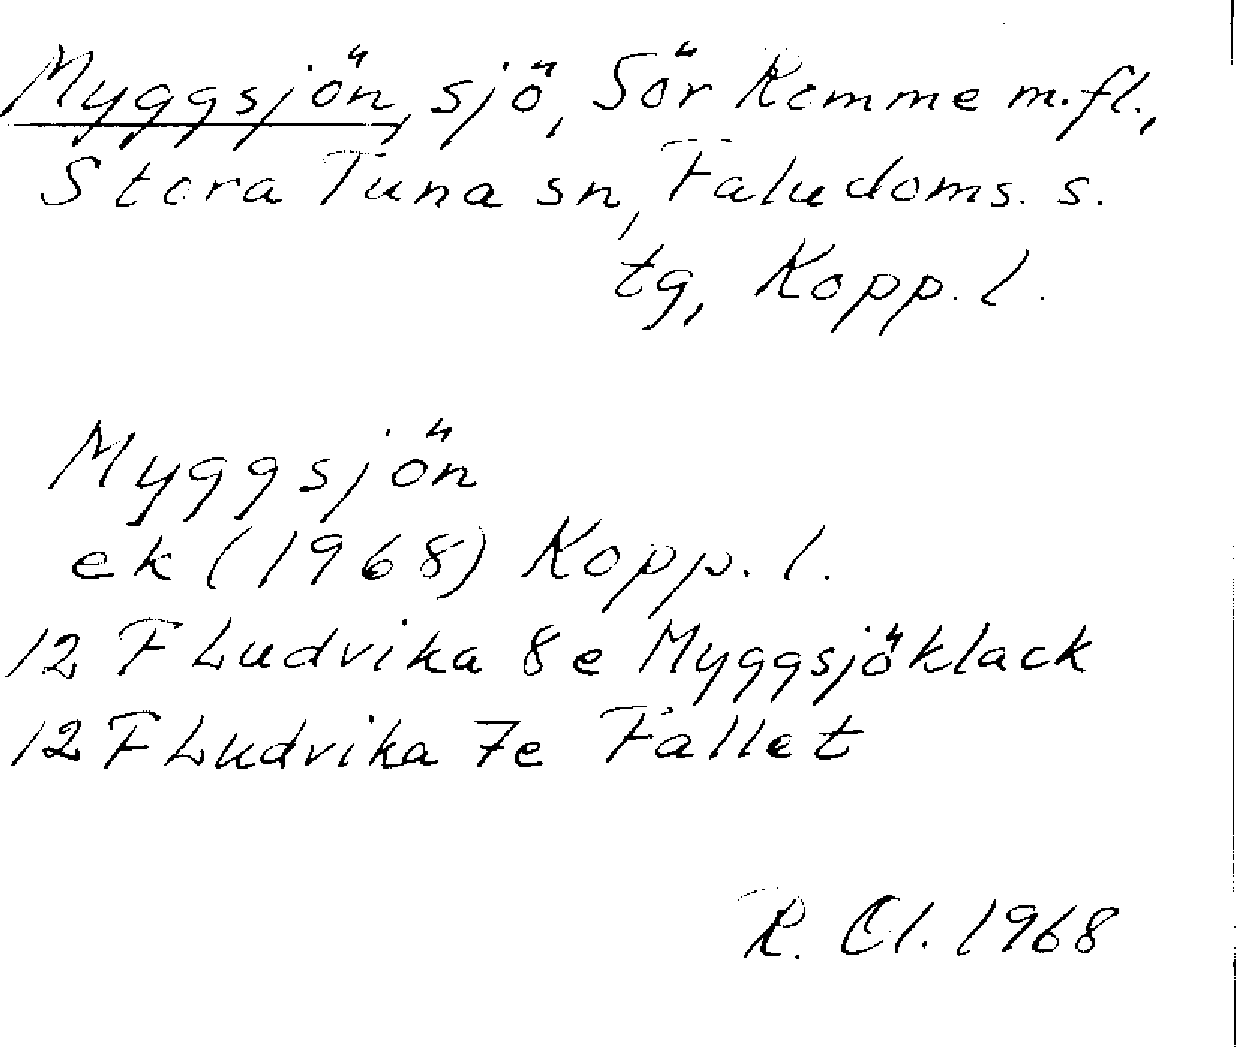 Myggsjön, sjö, Sör Romme m.fl.,
Stora Tuna sn, Faludoms. s.
tg, Kopp. l.
Myggsjön
ek (1968) Kopp. l.
12 F Ludvika 8e Myggsjöklack
12 F Ludvika 7e Fallet
R. Ol. 1968